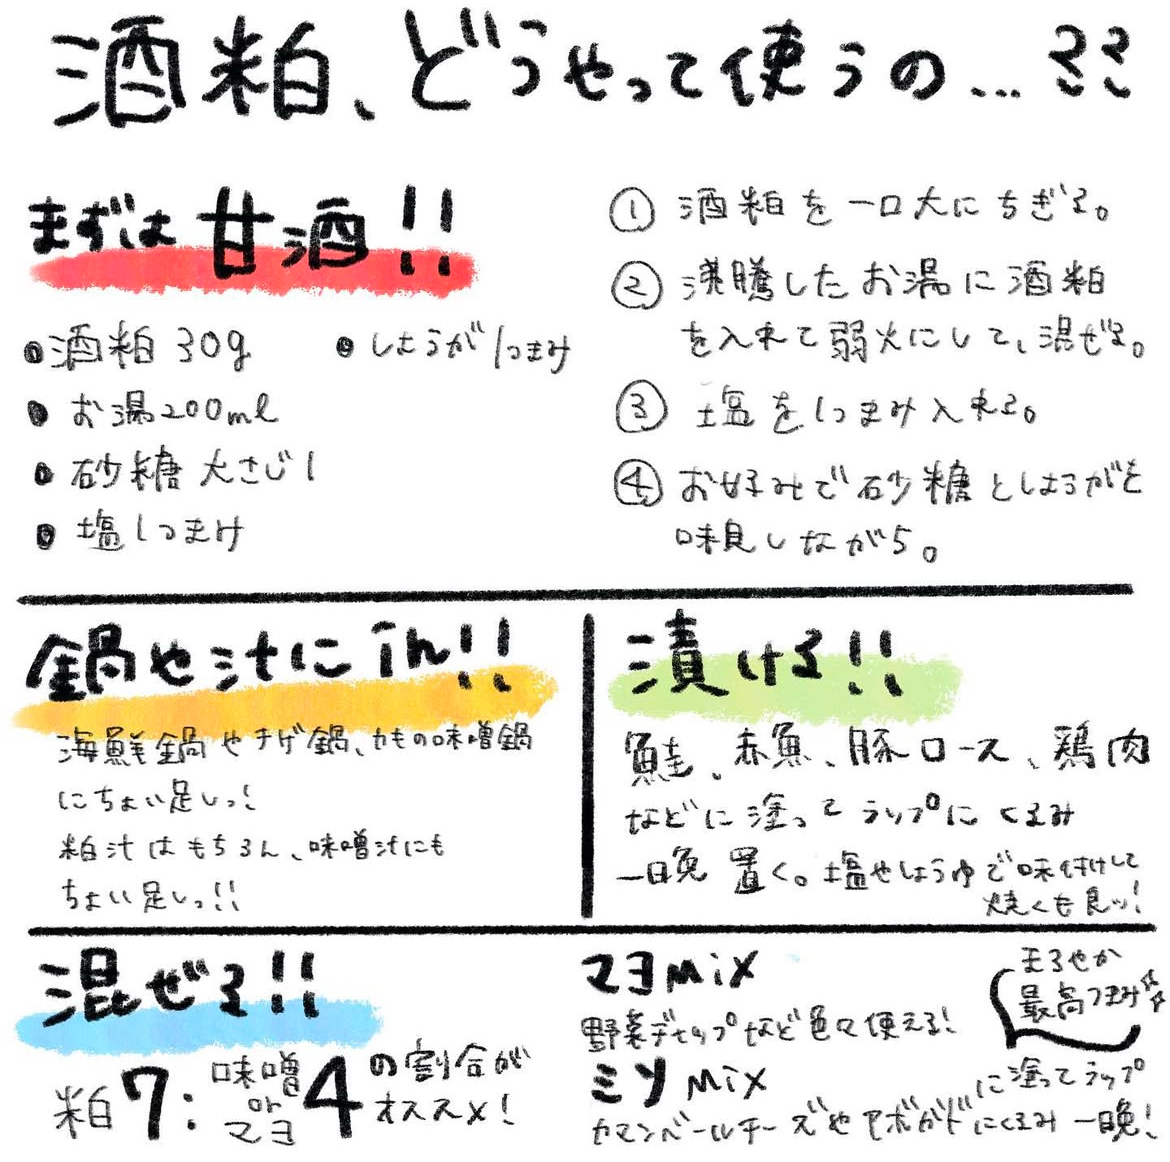 酒粕、どうやって使うの…??
まずは甘酒!!
●酒粕 30g
●しょうが1つまみ
●お湯200ml
●砂糖 大さじ1
●塩1つまみ
① 酒粕を一口大にちぎる。
② 沸騰したお湯に酒粕
を入れて弱火にして、混ぜる。
③ 塩を1つまみ入れる。
④ お好みで砂糖としょうがを
味見しながら。
鍋や汁にin!!
海鮮鍋やチゲ鍋、かもの味噌鍋
にちょい足しっ!
粕汁はもちろん、味噌汁にも
ちょい足しっ!!
漬ける!!
鮭、赤魚、豚ロース、鶏肉
などに塗ってラップにくるみ
一晩置く。塩やしょうゆで味付けして
焼くも良ッ!
混ぜる!!
粕7:味噌orマヨ4の割合が
オススメ!
マヨmix
野菜ディップなど色々使える!
ミソmix
カマンベールチーズやアボガドに塗ってラップ
にくるみ一晩!
まろやか
最高つまみ☆